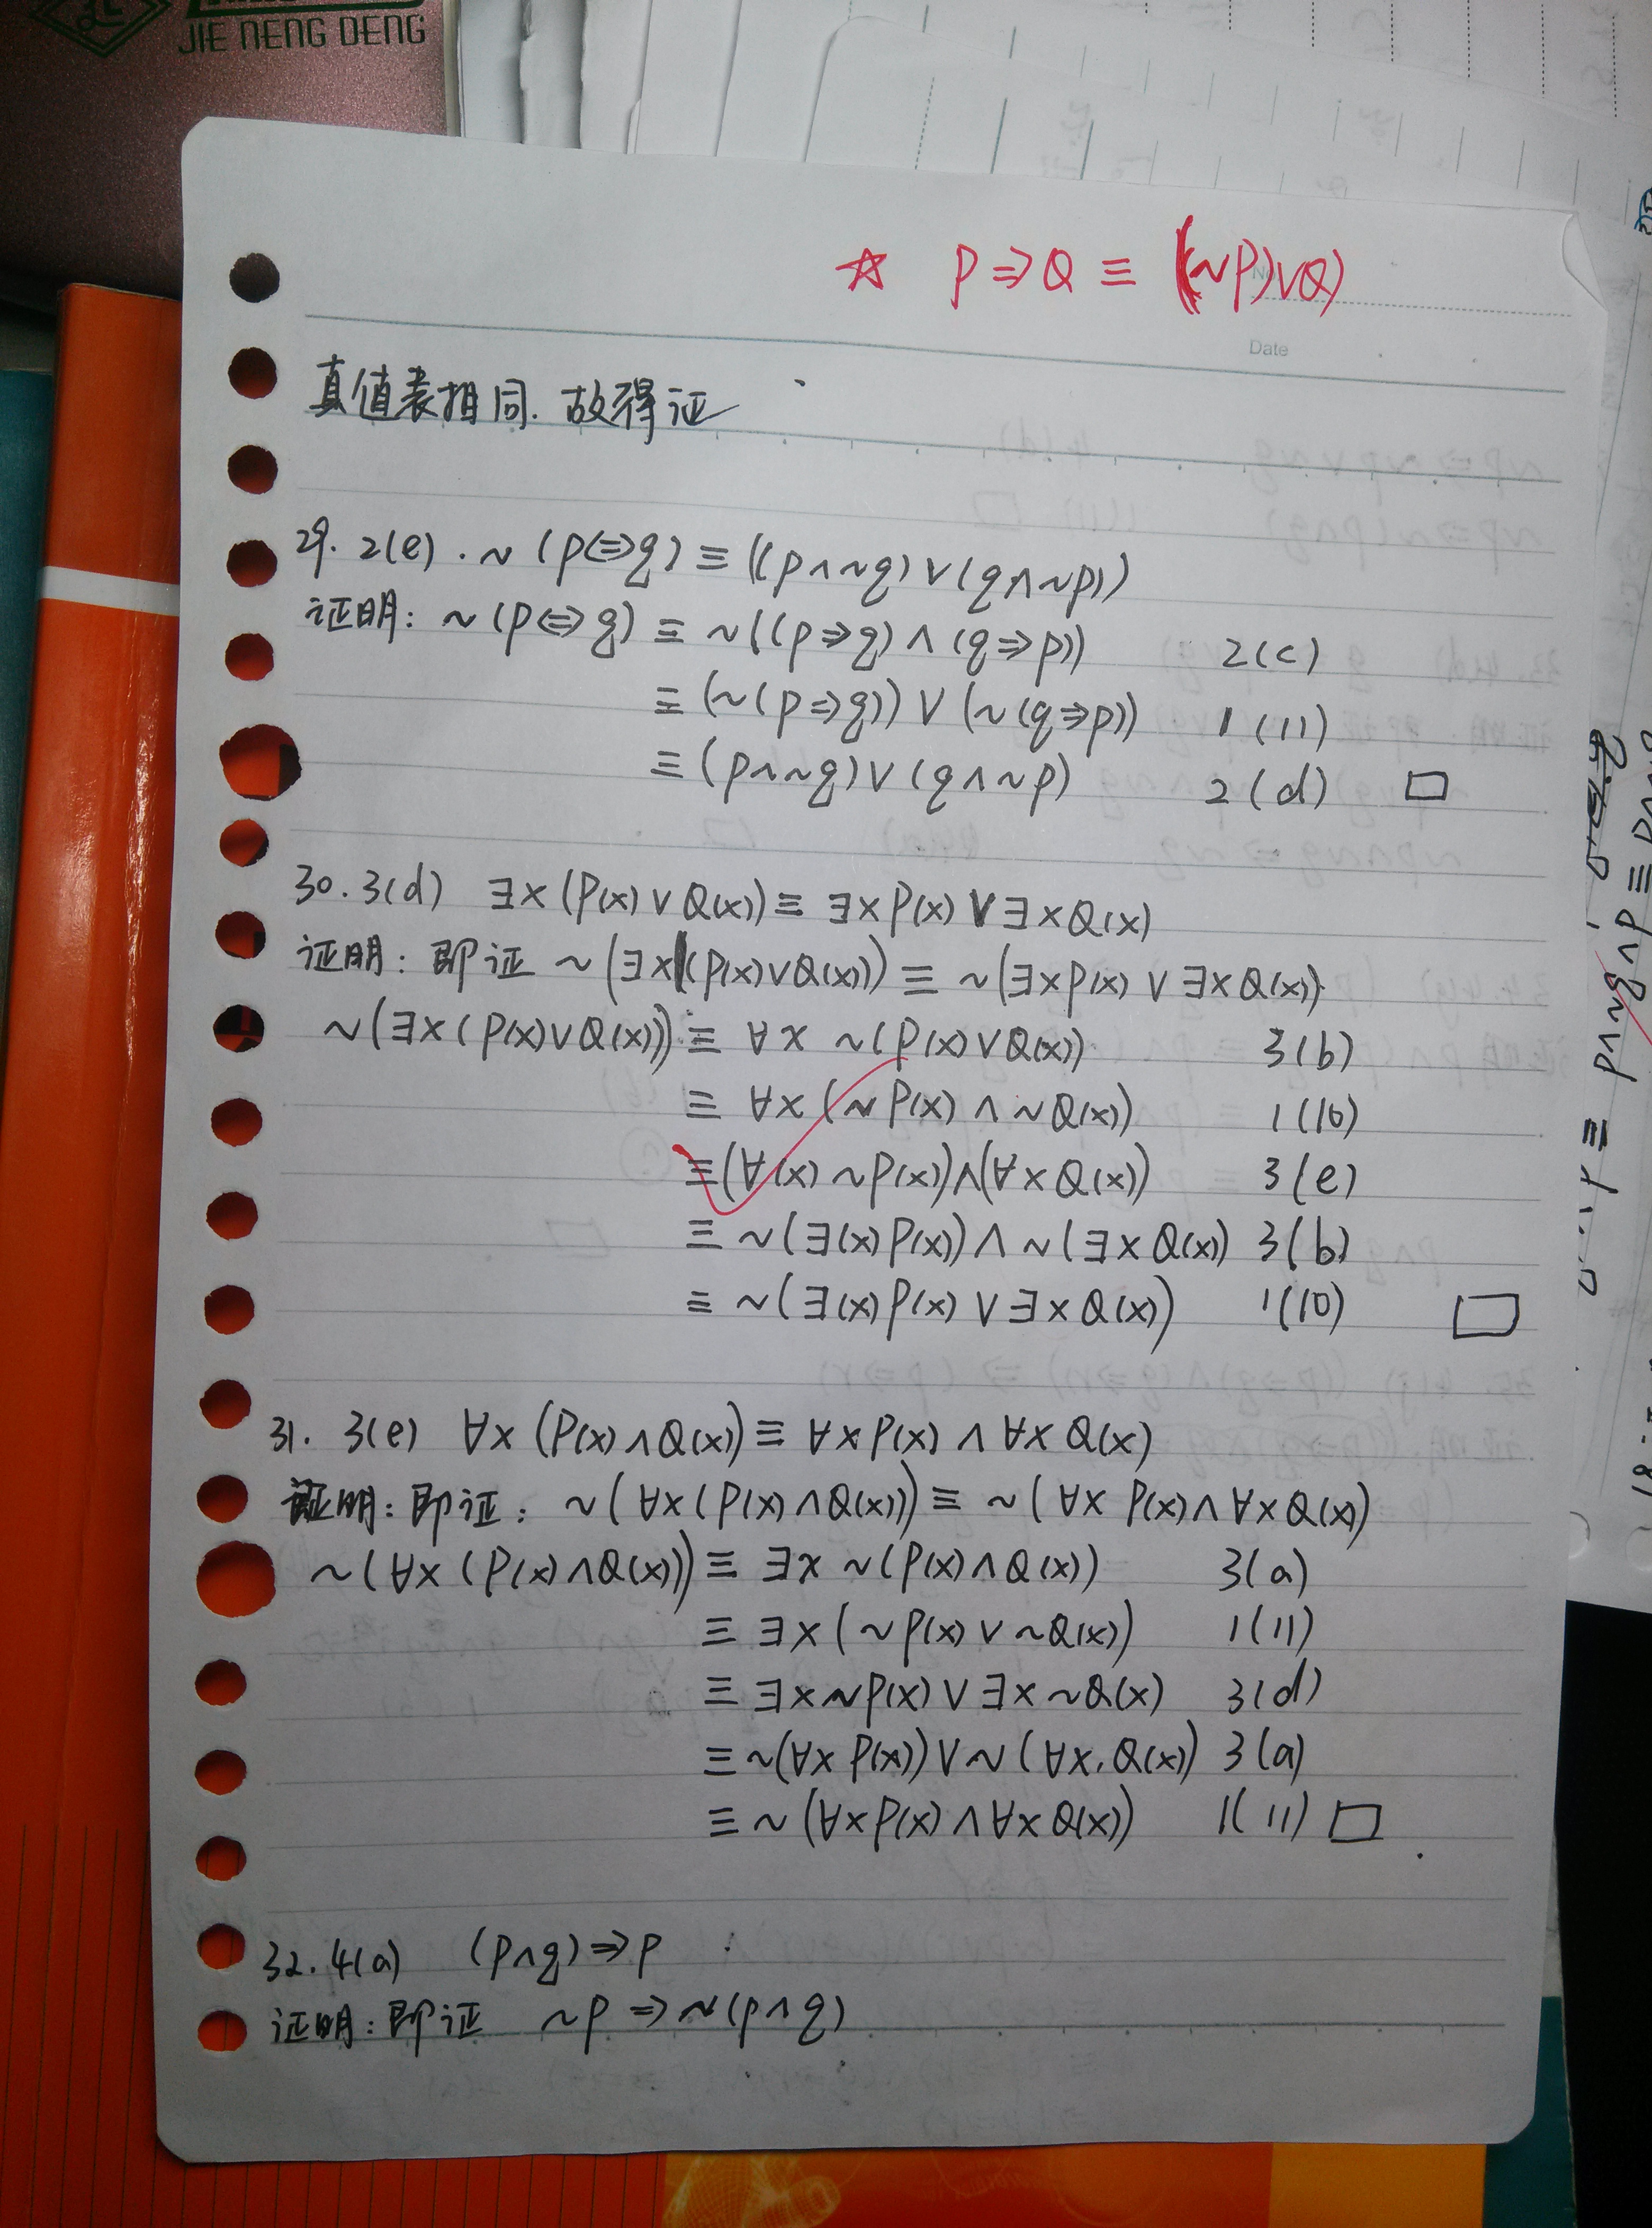 JIE NENG DENG
☆ P⇒Q ≡ ((~P)∨Q)
No.
Date
真值表相同. 故得证
29. 2(e). ~(p⇔q) ≡ ((p∧~q)∨(q∧~p))
证明: ~(p⇔q) ≡ ~((p⇒q)∧(q⇒p)) 2(c)
≡ (~(p⇒q))∨(~(q⇒p)) 1(11)
≡ (p∧~q)∨(q∧~p) 2(d) □
30. 3(d) ∃x(P(x)∨Q(x)) ≡ ∃xP(x)∨∃xQ(x)
证明: 即证 ~(∃x(P(x)∨Q(x))) ≡ ~(∃xP(x)∨∃xQ(x))
~(∃x(P(x)∨Q(x))) ≡ ∀x ~(P(x)∨Q(x)) 3(b)
≡ ∀x(~P(x)∧~Q(x)) 1(10)
≡(∀(x)~P(x))∧(∀xQ(x)) 3(e)
≡ ~(∃(x)P(x))∧~(∃xQ(x)) 3(b)
≡ ~(∃(x)P(x)∨∃xQ(x)) 1(10) □
31. 3(e) ∀x(P(x)∧Q(x)) ≡ ∀xP(x)∧∀xQ(x)
证明: 即证: ~(∀x(P(x)∧Q(x))) ≡ ~(∀xP(x)∧∀xQ(x))
~(∀x(P(x)∧Q(x))) ≡ ∃x ~(P(x)∧Q(x)) 3(a)
≡ ∃x(~P(x)∨~Q(x)) 1(11)
≡ ∃x~P(x)∨∃x~Q(x) 3(d)
≡ ~(∀xP(x))∨~(∀x,Q(x)) 3(a)
≡ ~(∀xP(x)∧∀xQ(x)) 1(11) □
32. 4(a) (p∧q)⇒p
证明: 即证 ~p ⇒ ~(p∧q)